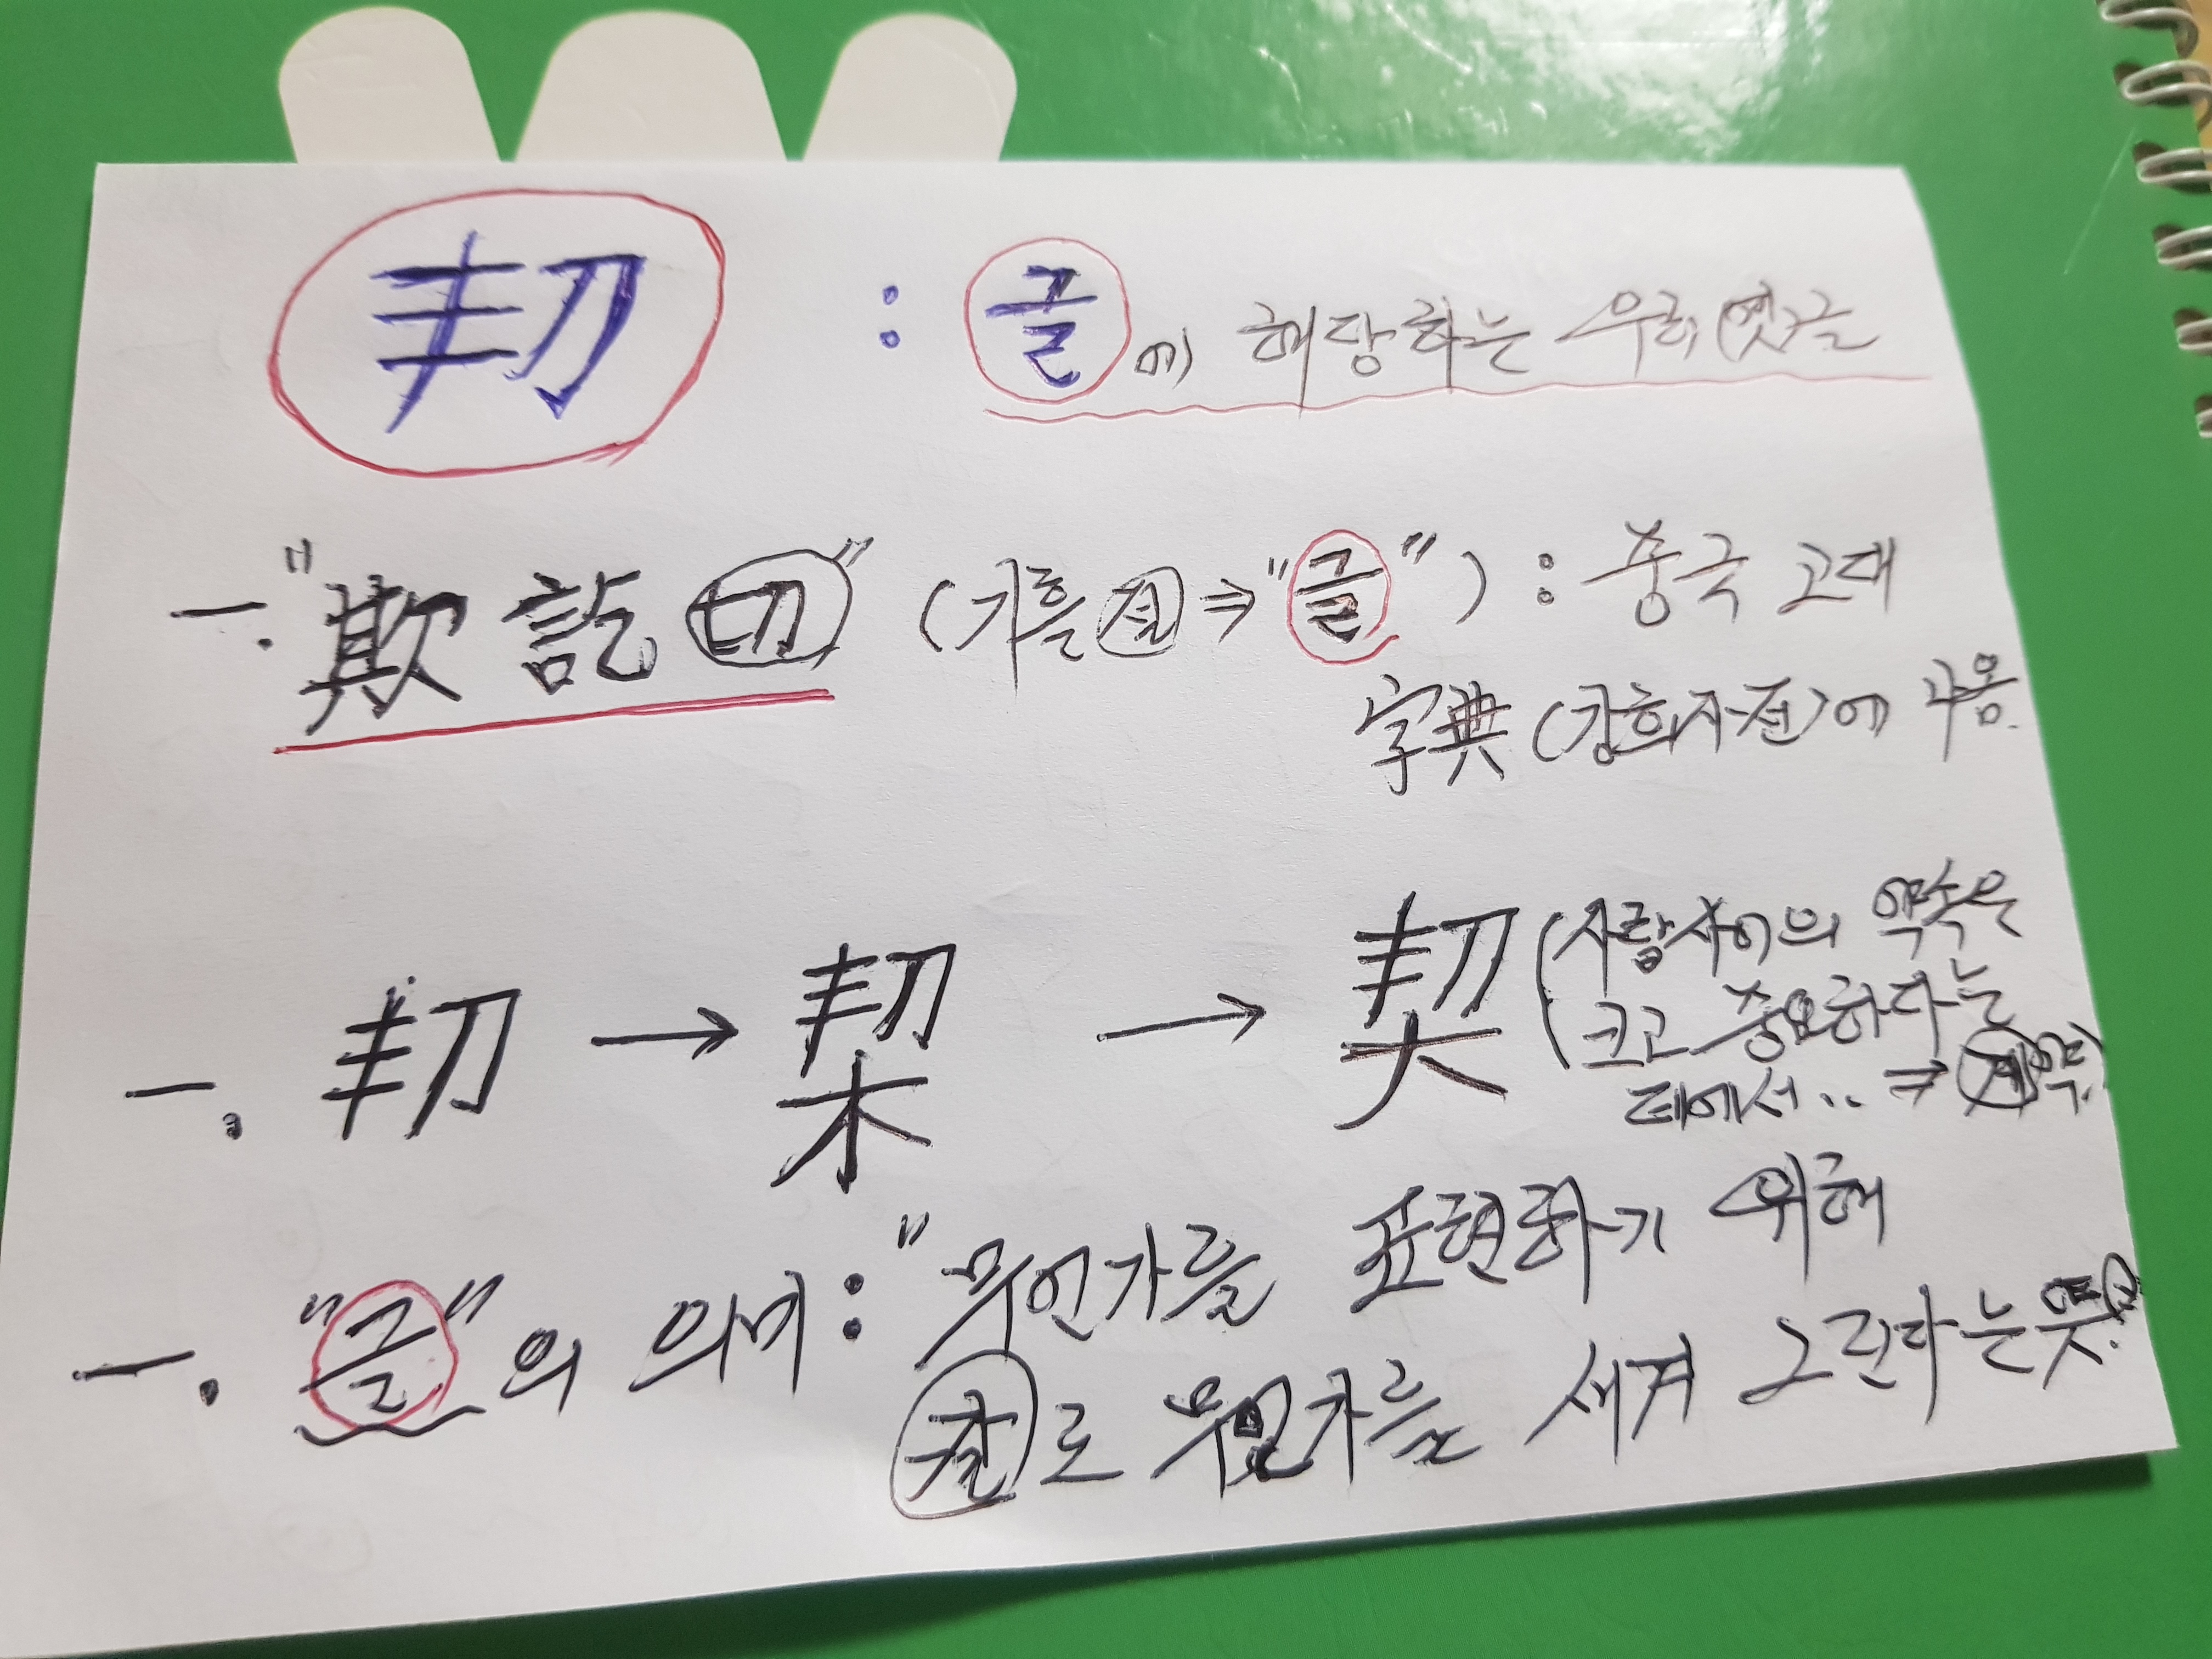 㓞 : 글에 해당하는 우리 옛글
一. "欺訖切" (기흘절 ⇒ "글") : 중국 고대
字典 (강희자전)에 사용.
一. 㓞 → 栔 → 契 (사람사이의 약속은
크고 중요하다는
데에서.. ⇒ 계약.)
一. "글"의 의미 : "무언가를 표현하기 위해
칼로 무언가를 새겨 그린다는 뜻."